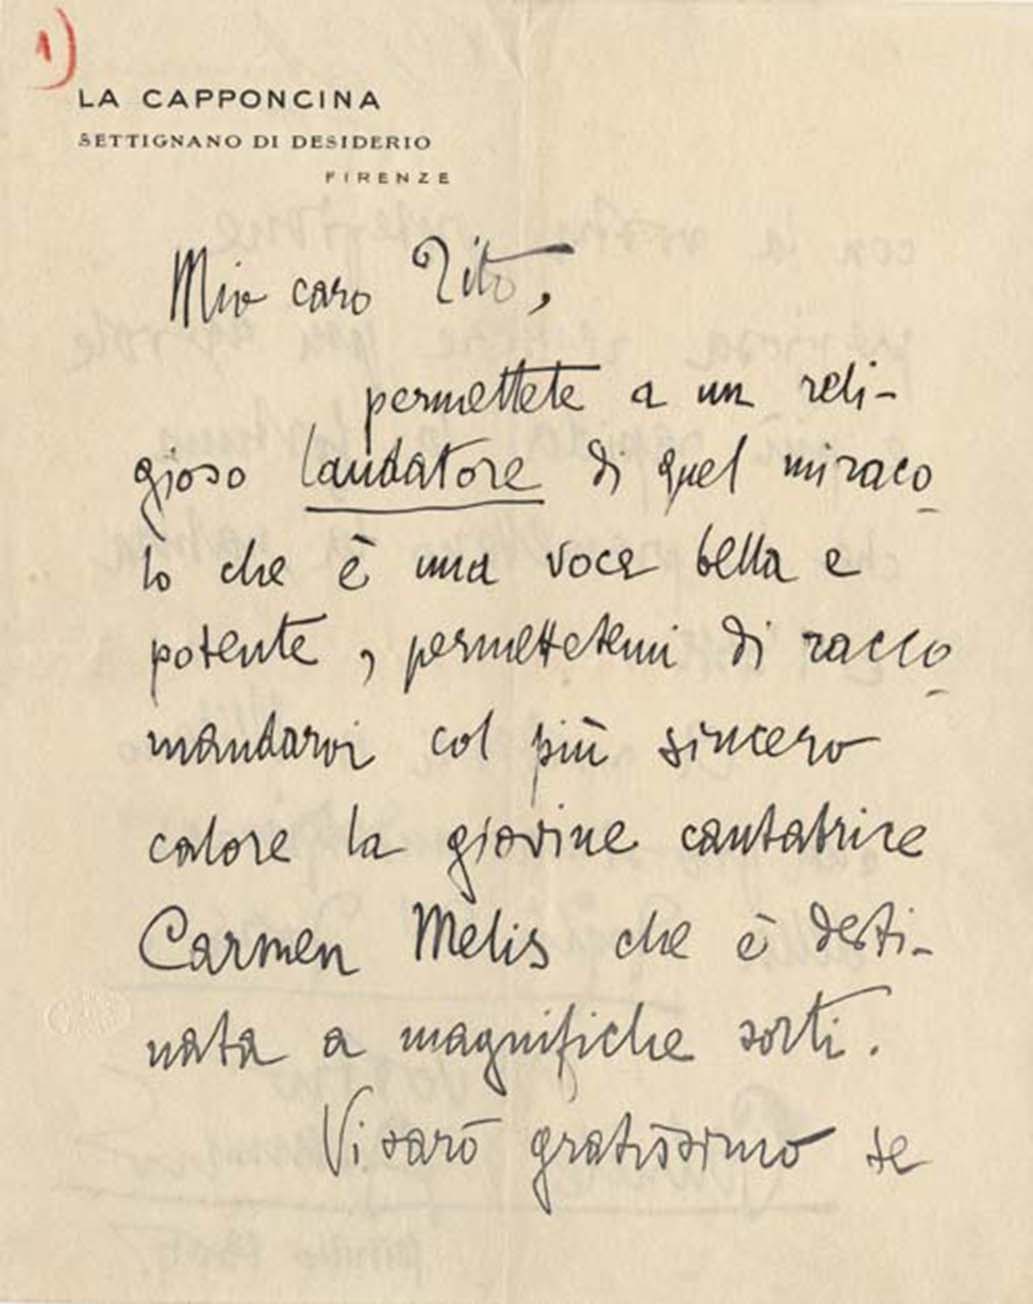 1)
LA CAPPONCINA
SETTIGNANO DI DESIDERIO
FIRENZE
Mio caro Tito,
permettete a un reli-
gioso laudatore di quel miraco-
lo che è una voce bella e
potente, permettetemi di racco-
mandarvi col più sincero
calore la giovine cantatrice
Carmen Melis che è desti-
nata a magnifiche sorti.
Vi sarò gratissimo se